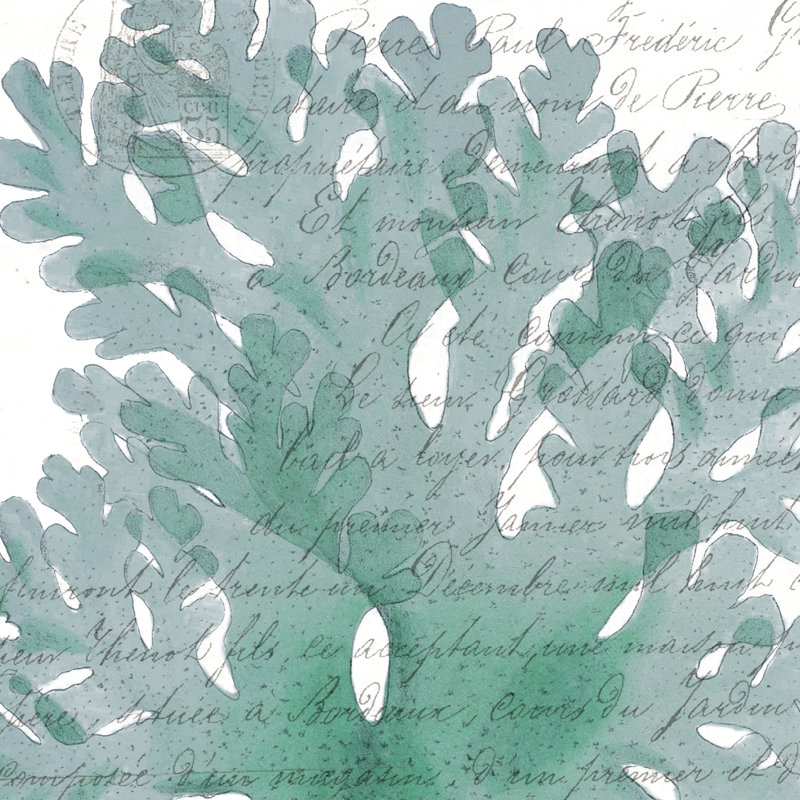 Pierre Paul Frédéric
et au nom de Pierre
propriétaire, demeurant a Bord
Et monsieur Thenot fils
a Bordeaux cours du Jardin
A été convenu ce qui
Le sieur Grossard donne
bail a loyer, pour trois années
du premier Janvier mil huit
finiront le trente un Décembre mil huit c
sieur Thenot fils, ce acceptant, une maison
située a Bordeaux, cours du Jardin
composée d'un magasin, d'un premier et d
cen. 25